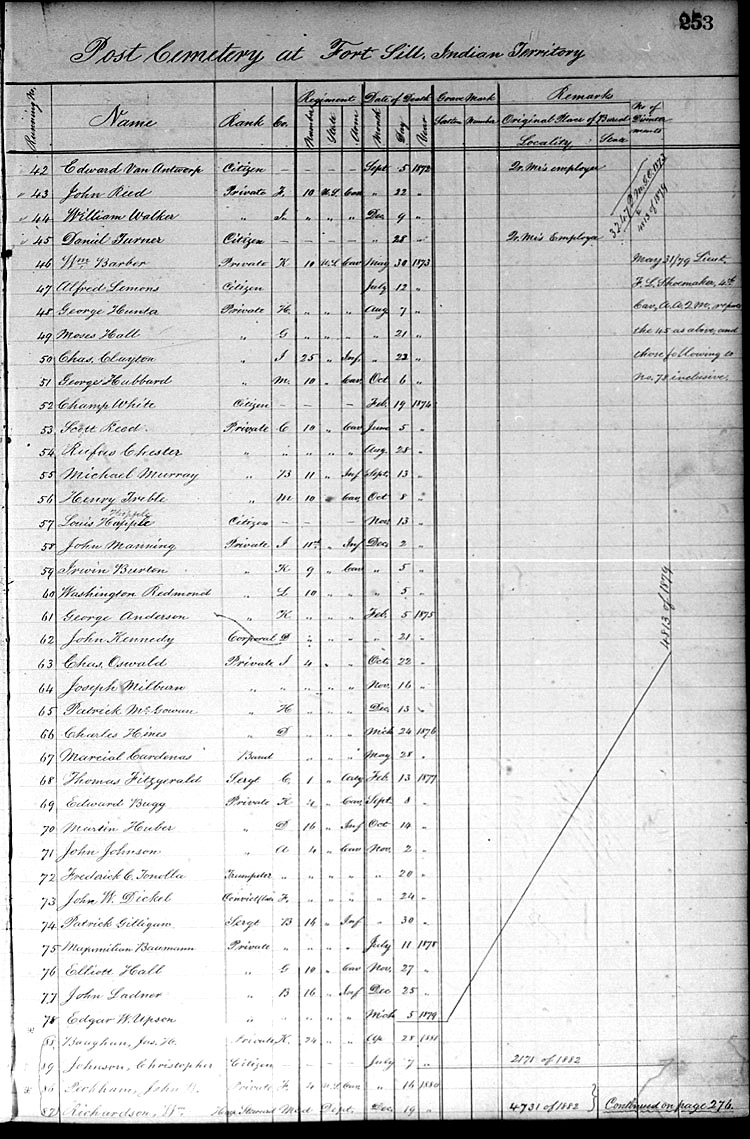 253
Post Cemetery at Fort Sill, Indian Territory
Running No. Name Rank Co. Regiment Number State Arm Date of Death Month Day Year Grave Mark Section Number Remarks Original Place of Burial Locality State No of Disinterments
42 Edward Van Antwerp Citizen — — — — Sept. 5 1872 Qr. Mr's employee
43 John Reed Private F. 10 U.S. Cav. " 22 "
44 William Walker " " " " " Dec. 9 "
45 Daniel Turner Citizen — — — — " 28 " Qr. Mr's Employee
4813 of 1879
46 Wm Barber Private K 10 U.S. Cav. May 30 1873 May 31/79 Lieut.
47 Alfred Lemons Citizen July 12 " F. L. Shoemaker, 4th
48 George Hunta Private H. " " " Aug 7 " Cav, A.A.Q.M. reports
49 Moses Hall " G " " " " 21 " the 45 as above, and
50 Chas. Clayton " I 25 " Inf. " 22 " those following to
51 George Hubbard " M. 10 " Cav. Oct 6 " No. 78 inclusive.
52 Champ White Citizen — — — Feb. 19 1874
53 Scott Reed. Private C 10 " Cav. June 5 "
54 Rufus Chester " " " " " Aug. 28 "
55 Michael Murray " B 11 " Inf. Sept. 13 "
56 Henry Treble " M 10 " Cav. Oct 8 "
Hipple
57 Louis Happle Citizen — — — Nov. 13 "
58 John Manning Private I 11th " Inf Dec. 2 "
59 Irwin Burton " K 9 " Cav. " 5 "
60 Washington Redmond " L 10 " " " 5 "
61 George Anderson " K " " " Feb. 5 1875
62 John Kennedy Corporal D " " " " 21 "
63 Chas. Oswald Private I 4 " " Oct. 22 "
64 Joseph Milburn " " " " " Nov. 16 "
65 Patrick McGowan " H " " " Dec. 13 "
66 Charles Hines " D " " " Mch 24 1876
67 Marcial Cardenas Band " " " May 28 "
68 Thomas Fitzgerald Sergt C. 1 " Arty Feb. 13 1877
69 Edward Bugy Private K 4 " Cav. Sept. 8 "
70 Martin Huber " D 16 " Inf Oct 14 "
71 John Johnson " A 4 " Cav. Nov. 2 "
72 Frederick C. Tonolla Trumpeter " " " " " 20 "
73 John W. Dickel F. " " " " 24 "
74 Patrick Gilligan Sergt B 16 " Inf " 30 "
75 Maximilian Baumann Private " " " " July 11 1878
76 Elliott Hall " G 10 " Cav. Nov. 27 "
77 John Ladner " B 16 " Inf Dec 25 "
78 Edgar W. Upson Mch 5 1879
4813 of 1879
88 Baughun, Jas. H. Private K. 24 " " Ap. 28 1881
89 Johnson, Christopher Citizen — — — July 7 " 2178 of 1882
86 Peckham, John Private F. 4 U.S. Cav. " 16 1880
87 Richardson, Wm. Hosp. Steward Med. Dept. Dec. 19 " 4731 of 1882 Continued on page 276.